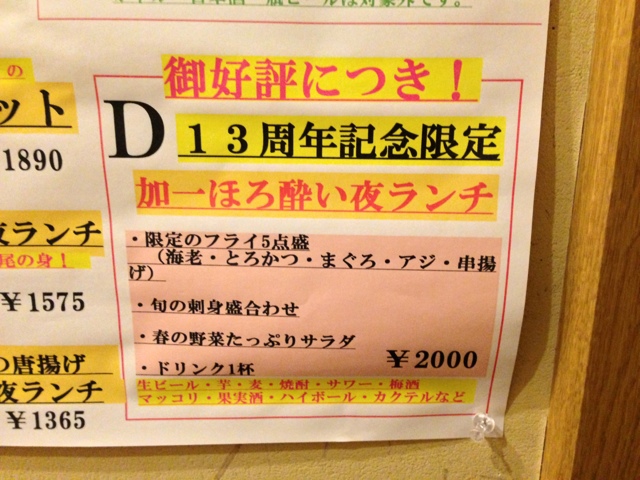 御好評につき！
D １３周年記念限定
加一ほろ酔い夜ランチ
・限定のフライ5点盛
（海老・とろかつ・まぐろ・アジ・串揚
げ）
・旬の刺身盛合わせ
・春の野菜たっぷりサラダ
・ドリンク1杯
￥2000
生ビール・芋・麦・焼酎・サワー・梅酒
マッコリ・果実酒・ハイボール・カクテルなど
の
ット
1890
夜ランチ
尾の身！
￥1575
の唐揚げ
夜ランチ
￥1365